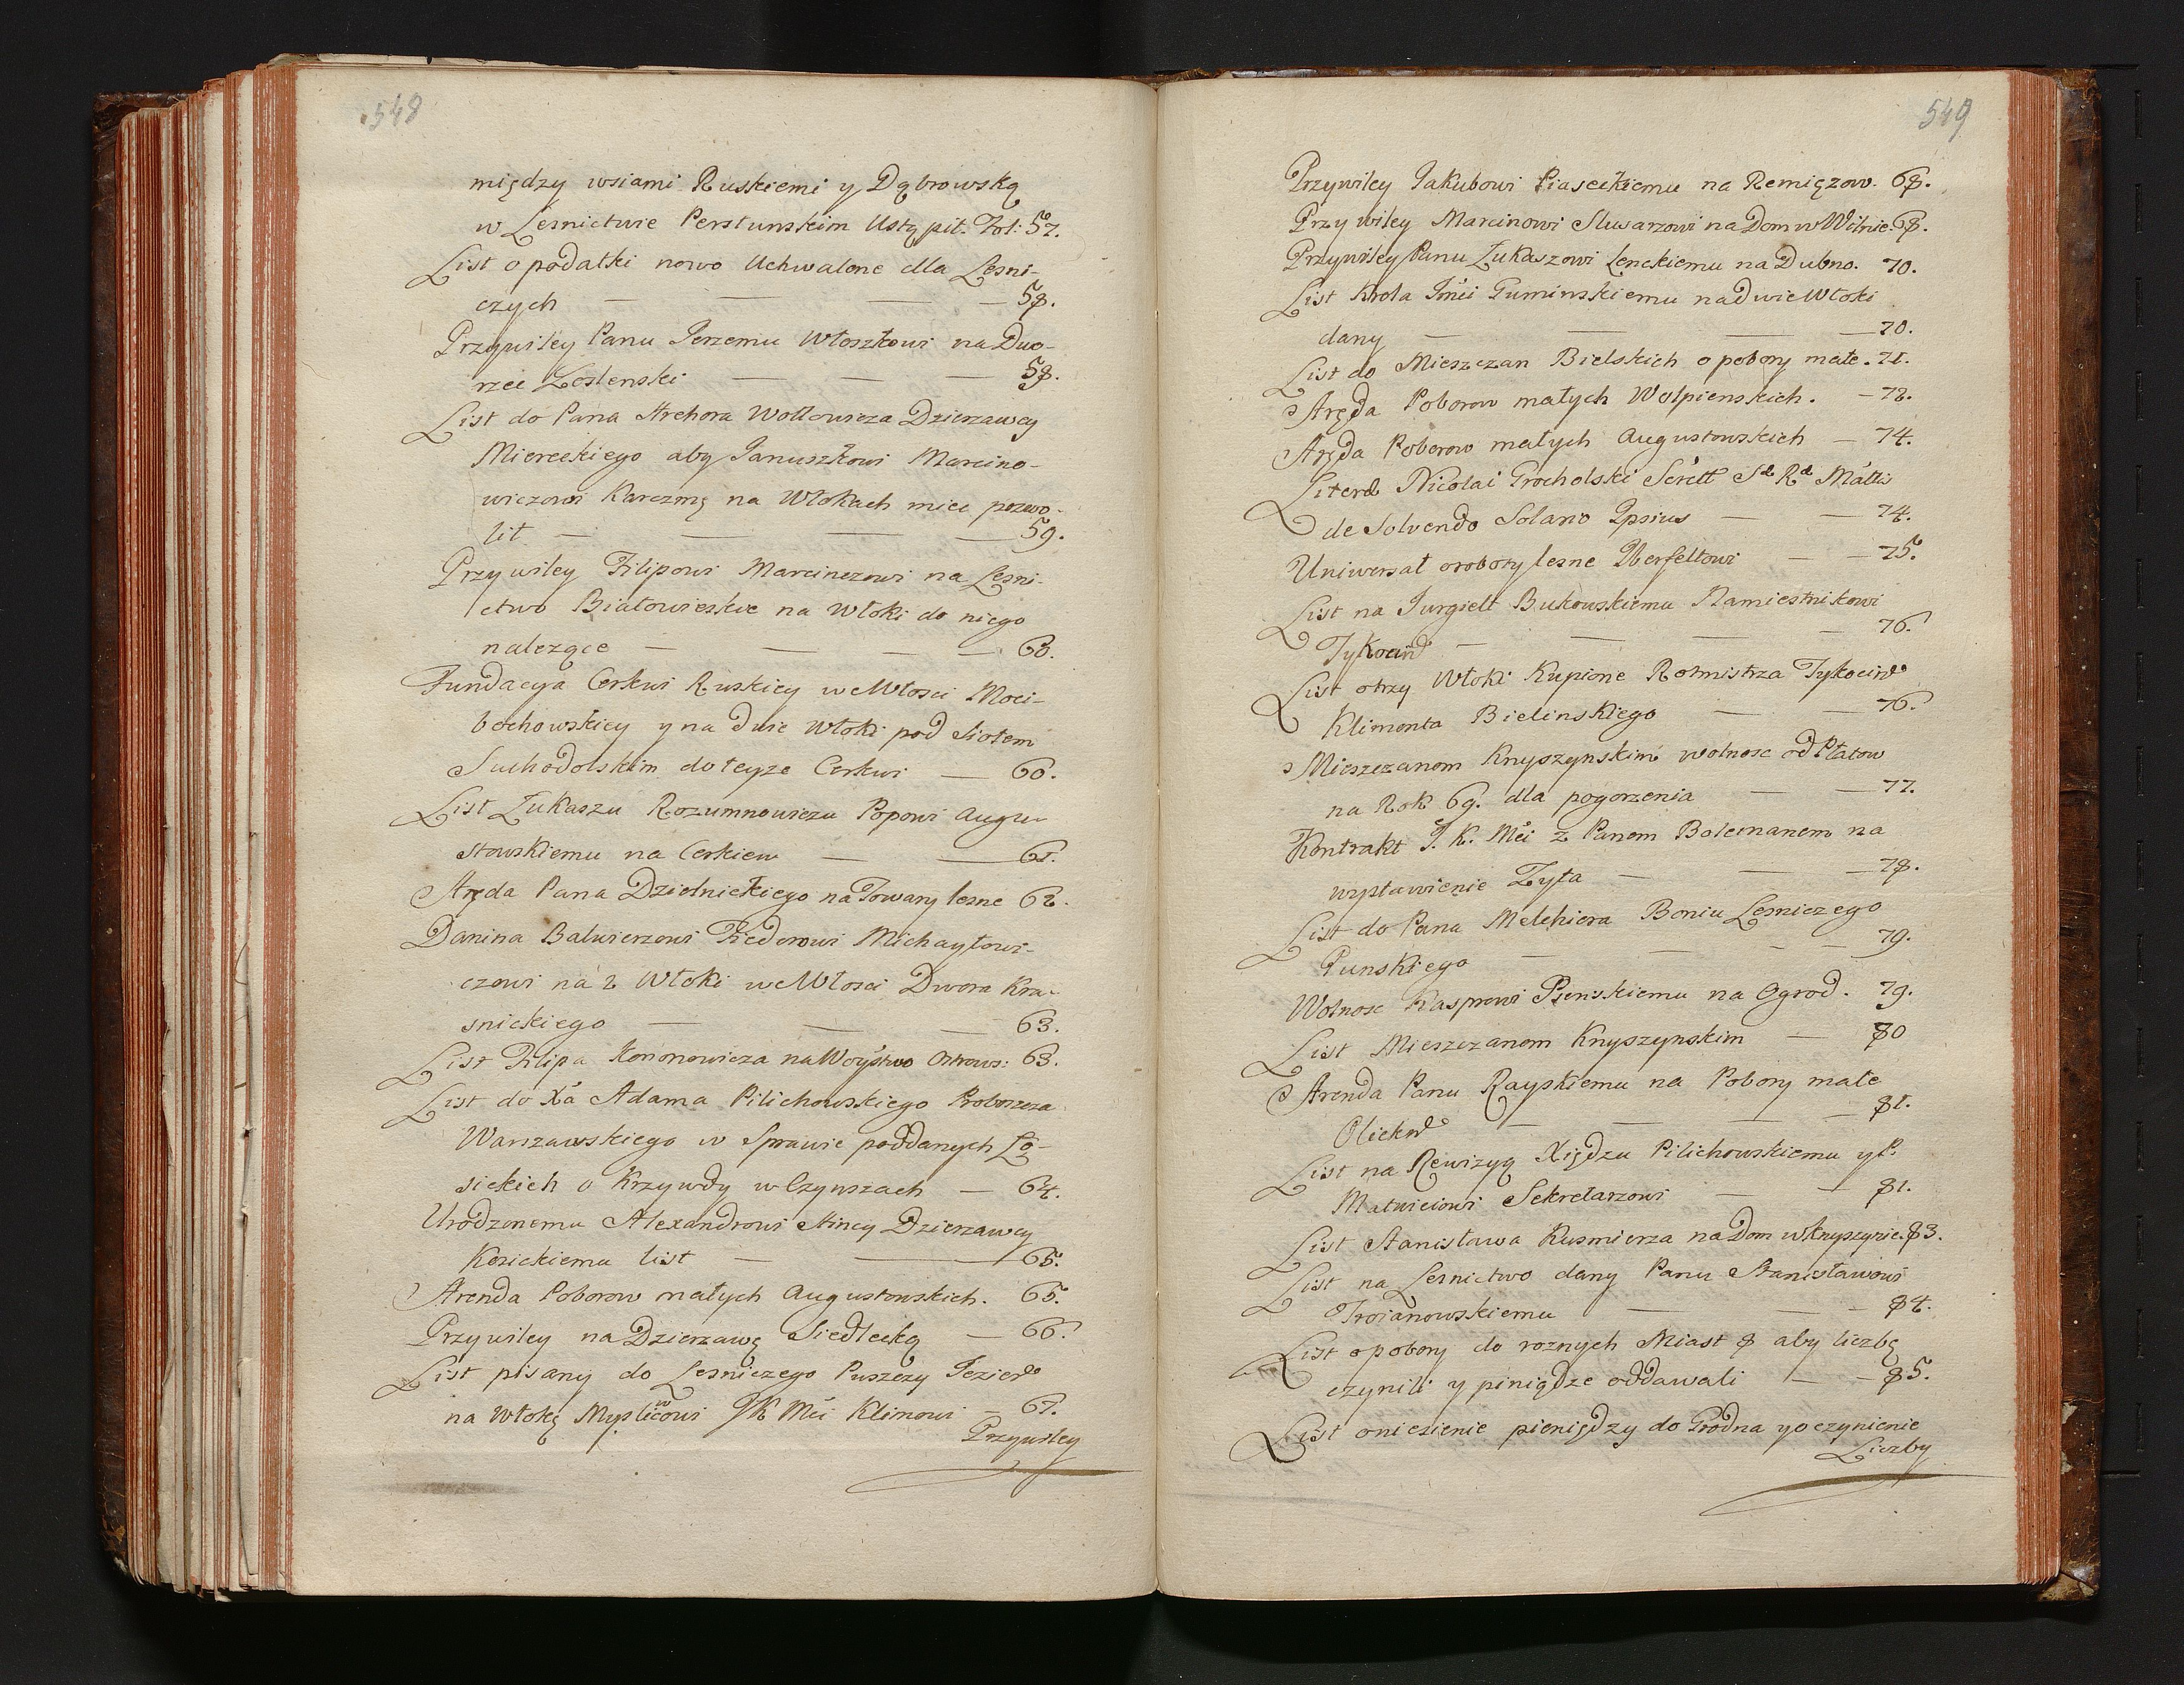 548
między wsiami Ruskiemi y Dąbrowską
w Lesnictwie Perstunskim Ustąpił. Fol: 57.
List o podatki nowo Uchwalone dla Lesni-
czych — — — 58.
Przywiley Panu Jerzemu Włoszkowi na Dwo-
rzec Leslenski — — — 58.
List do Pana Hrehora Wołłowicza Dzierzawcy
Miereckiego aby Januszkowi Marcino-
wiczowi Karczmę na Włokach miec pozwo-
lił — — — — 59.
Przywiley Filipowi Marcinezowi na Lesni-
ctwo Białowieskie na Włoki do niego
nalezące — — — — 60.
Fundacya Cerkwi Ruskiey we Włosci Moci-
bochowskiey y na dwie Włoki pod Siołem
Suchodolskim do teyze Cerkwi — 60.
List Łukaszu Rozumnowiczu Popowi Augu-
stowskiemu na Cerkiew — — 61.
Aręda Pana Dzielnickiego na Towary lesne 62.
Danina Balwierzowi Fiedorowi Michayłowi-
czowi na 2 Włoki we Włosci Dwora Kra-
snickiego — — — 63.
List Filipa Kononowicza na Woytwo Ostrows: 63.
List do Xa Adama Pilichowskiego Proboszcza
Warszawskiego w Sprawie poddanych Ło-
sickich o Krzywdy w Czynszach — 64.
Urodzonemu Alexandrowi Hincy Dzierzawcy
Kozickiemu list — — 65.
Arenda Poborow małych Augustowskich. 65.
Przywiley na Dzierzawę Siedlecką — 66.
List pisany do Lesniczego Puszczy Jezier
na Włokę Myśliwcowi JK Mci Klimowi — 67.
Przywiley
549
Przywiley Jakubowi Piaseckiemu na Remięzow. 68.
Przywiley Marcinowi Sluwarzowi na Dom w Wilnie. 68.
Przywiley Panu Łukaszowi Lenckiemu na Dubno. 70.
List Krola Jmci Guminskiemu na dwie Włoki
dany — — — — 70.
List do Mieszczan Bielskich o pobory małe. 71.
Aręda Poborow małych Wolpienskich. — 72.
Aręda Poborow małych Augustowskich — 74.
Literæ Nicolai Grocholski Scrett Sæ Ræ Mattis
de Solvendo Solario Ipsius — — 74.
Uniwersał o roboty lesne Oberfeltowi — — 75.
List na Jurgielt Bukowskiemu Namiestnikowi
Tykocin — — — — 76.
List o trzy Włoki Kupione Rotmistrza Tykocin
Klimonta Bielinskiego — — 76.
Mieszczanom Knyszynskim wolnosc od Płatow
na Rok 69. dla pogorzenia — — 77.
Kontrakt J. K. Mci z Panem Bolemanem na
wystawienie Zyta — — — 78.
List do Pana Melchiora Boniu Lesniczego
Punskiego — — — — 79.
Wolnosc Kasprowi Psenskiemu na Ogrod. 79.
List Mieszczanom Knyszynskim — 80
Arenda Panu Rayskiemu na Pobory małe
Olickie — — — — 81.
List na Rewizyą Xiędzu Pilichowskiemu y P.
Matwieiowi Sekretarzowi — — 81.
List Stanisława Kusmierza na Dom w Knyszynie. 83.
List na Lesnictwo dany Panu Stanisławowi
Troianowskiemu — — — 84.
List o pobory do roznych Miast 8 aby liczbę
czynili y piniądze oddawali — — 85.
List o niesienie pieniędzy do Grodna y o czynienie
Liczby